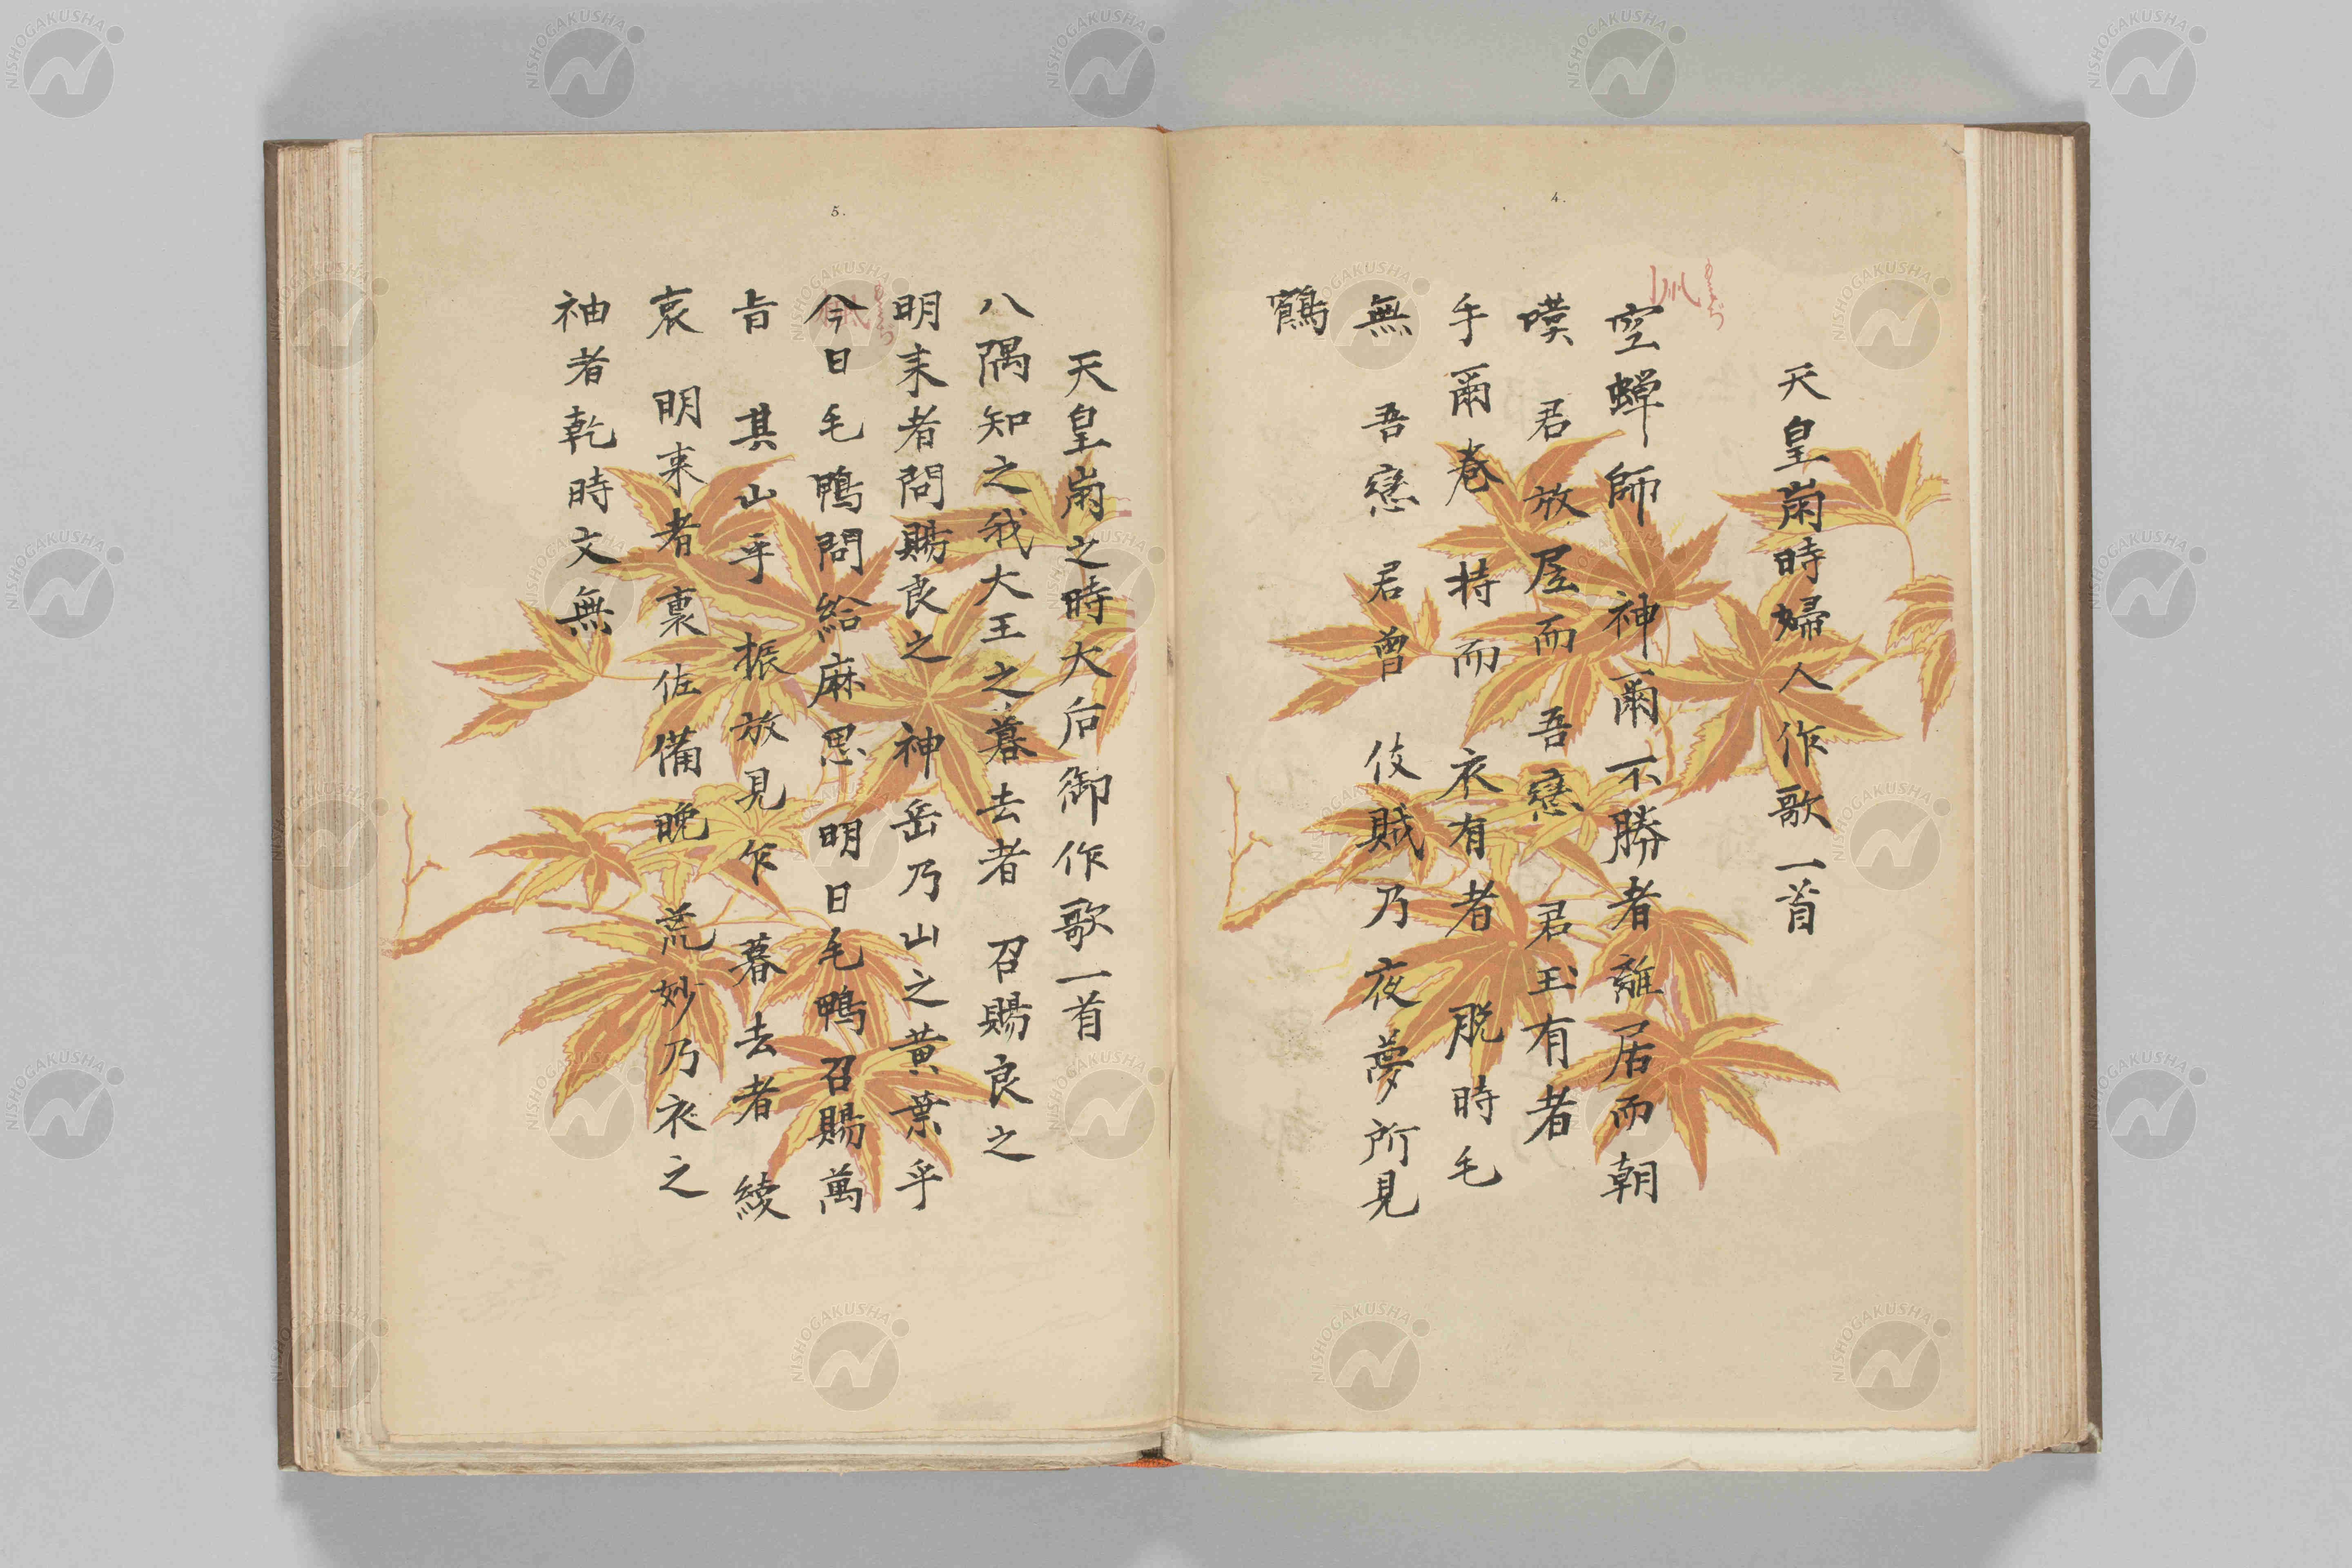 4.
天皇崩時婦人作歌一首
空蟬師神爾不勝者離居而朝
嘆君放居而吾戀君玉有者
手爾卷持而衣有者脱時毛
無吾戀君曾伎賊乃夜夢所見
鶴
5.
天皇崩之時大后御作歌一首
八隅知之我大王之暮去者召賜良之
明来者問賜良之神岳乃山之黄葉乎
今日毛鴨問給麻思明日毛鴨召賜萬
旨其山乎振放見乍暮去者綾
哀明来者裏佐備晩荒妙乃衣之
袖者乾時文無
NISHOGAKUSHA